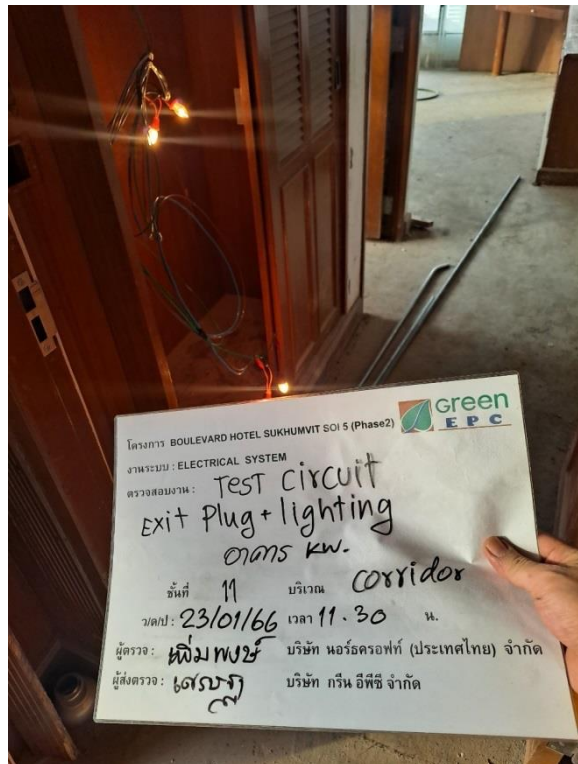 Green
EPC
โครงการ BOULEVARD HOTEL SUKHUMVIT SOI 5 (Phase2)
งานระบบ : ELECTRICAL SYSTEM
ตรวจสอบงาน : Test Circuit
Exit Plug + lighting
อาคาร KW.
ชั้นที่ 11 บริเวณ corridor
ว/ด/ป : 23/01/66 เวลา 11.30 น.
ผู้ตรวจ : เพิ่มพงษ์ บริษัท นอร์ธครอฟท์ (ประเทศไทย) จำกัด
ผู้ส่งตรวจ : บริษัท กรีน อีพีซี จำกัด